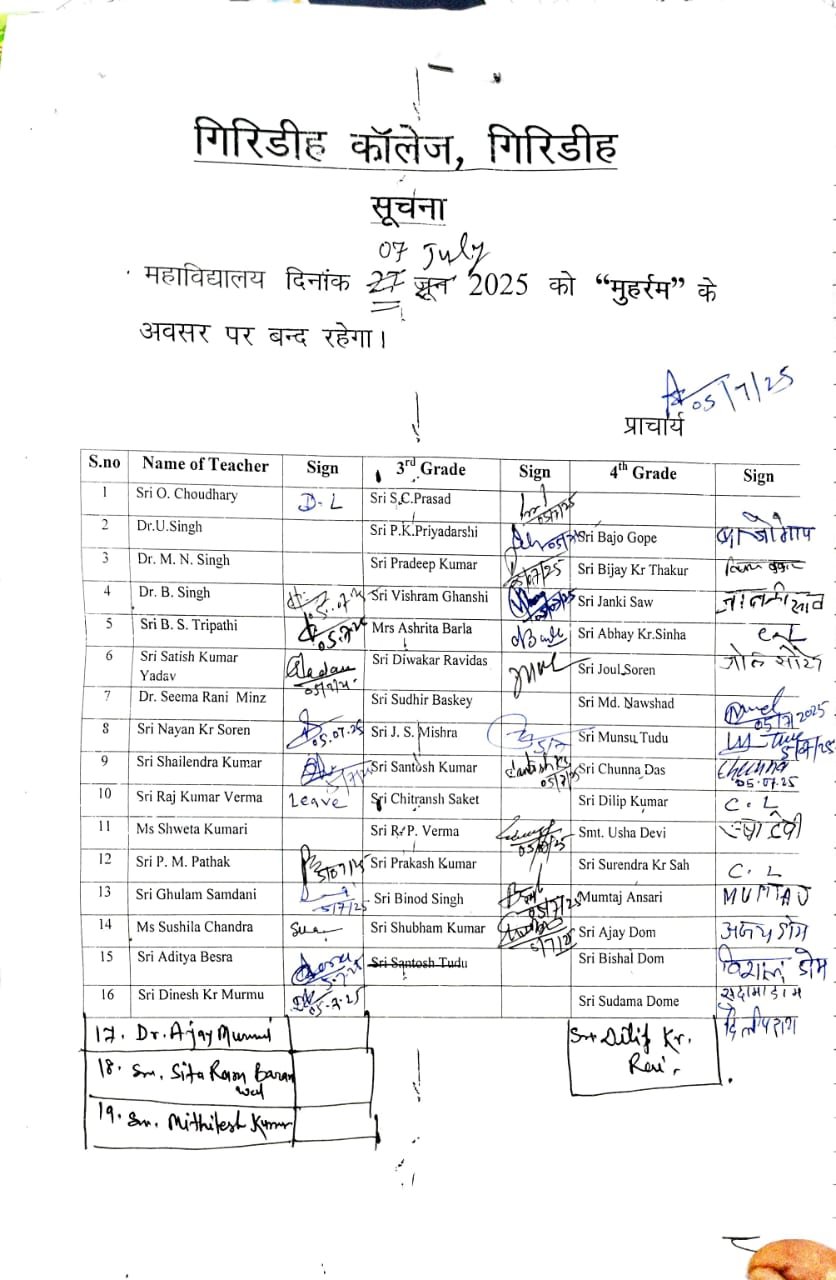 गिरिडीह कॉलेज, गिरिडीह
सूचना
07 July
महाविद्यालय दिनांक 27 जून 2025 को “मुहर्रम” के
अवसर पर बन्द रहेगा।
05/7/25
प्राचार्य
S.no Name of Teacher Sign 3rd Grade Sign 4th Grade Sign
1 Sri O. Choudhary D-L Sri S.C.Prasad 05/7/25
2 Dr.U.Singh Sri P.K.Priyadarshi Sri Bajo Gope बाजो गोप
3 Dr. M. N. Singh Sri Pradeep Kumar 5/07/25 Sri Bijay Kr Thakur
4 Dr. B. Singh 5.07.25 Sri Vishram Ghanshi Sri Janki Saw जानकी साव
5 Sri B. S. Tripathi 05.7.25 Mrs Ashrita Barla Sri Abhay Kr.Sinha
6 Sri Satish Kumar Yadav Sri Diwakar Ravidas Sri Joul Soren
7 Dr. Seema Rani Minz Sri Sudhir Baskey Sri Md. Nawshad 05/7/2025
8 Sri Nayan Kr Soren 05.07.25 Sri J. S. Mishra 5/7 Sri Munsu Tudu
9 Sri Shailendra Kumar 5/7/25 Sri Santosh Kumar Santosh Kr 05/7/25 Sri Chunna Das Chunna 05.07.25
10 Sri Raj Kumar Verma Leave Sri Chitransh Saket Sri Dilip Kumar C.L
11 Ms Shweta Kumari Sri R. P. Verma Smt. Usha Devi उषा देवी
12 Sri P. M. Pathak 5/07/25 Sri Prakash Kumar Sri Surendra Kr Sah C.L
13 Sri Ghulam Samdani 5/7/25 Sri Binod Singh 05/7/25 Mumtaj Ansari
14 Ms Sushila Chandra Sri Shubham Kumar 5/7/25 Sri Ajay Dom अजय डोम
15 Sri Aditya Besra 5.7.25 Sri Santosh Tudu Sri Bishal Dom विशाल डोम
16 Sri Dinesh Kr Murmu 05.7.25 Sri Sudama Dome सुदामा डोम
17. Dr. Ajay Murmu Sri Dilip Kr. Rai. दिलीप राय
18. Sri. Sita Ram Baranwal
19. Sri. Mithilesh Kumar